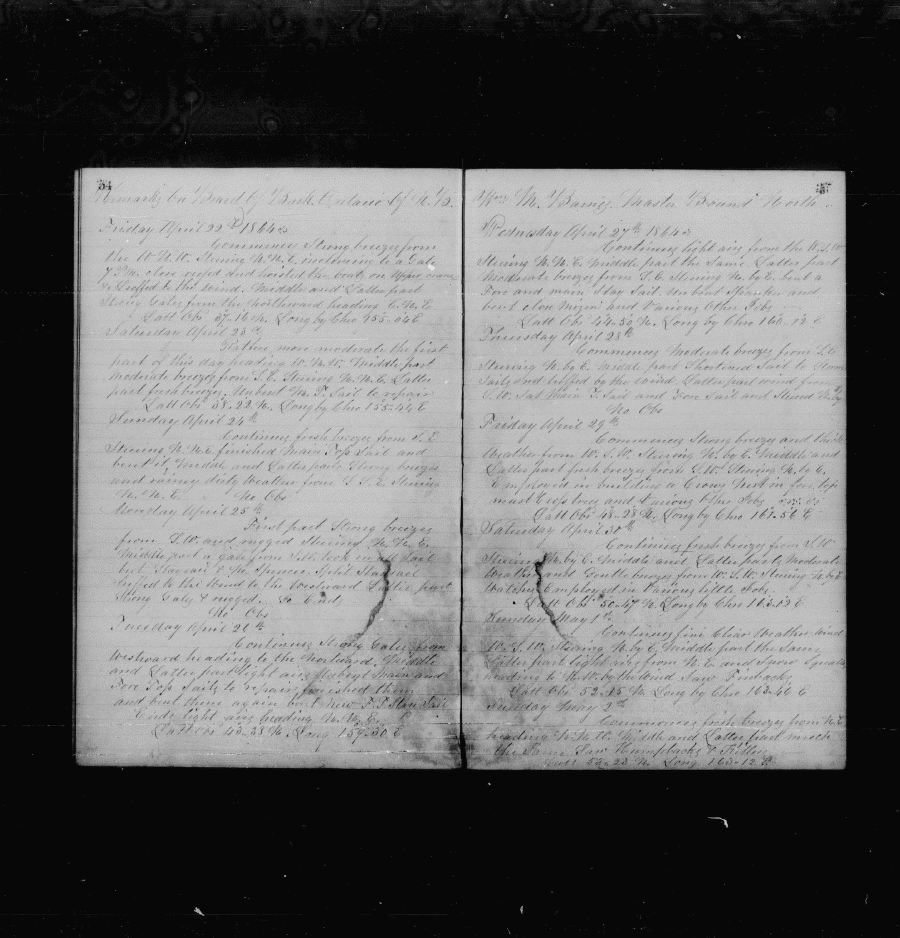 34
Remarks On Board Of Bark Ontario Of N. B.
Friday April 22d 1864
Commences Strong breezes from
the W.N.W. Stering N.N.E. increasing to a Gale
7 P.M. close reefed And hoisted the boat on upper cranes
& Luffed to the wind. Middle and Latter part
Strong Gales from the Northward heading E.N.E
Latt Obs 37-16 N. Long by Chro 155-04 E
Saturday April 23rd
more moderate the first
part of this day heading W.N.W. Middle part
moderate breezes from S.E. Stering N.N.E. Latter
part fresh breezes. Unbent M. T. Sail to repair
Latt Obs 38-22 N. Long by Chro 155-44 E
Sunday April 24th
Continues fresh breezes from S.E
Stering N.N.E. finished Main Top Sail and
bent it. Middle and Latter parts Strong breezes
and rainy dirty Weather from S.S.E. Stering
N.N.E. No Obs
Monday April 25th
First part Strong breezes
from S.W. and rugged Stering N.N.E.
Middle part a Gale from S.W. took in all Sail
but Staysail & M. Spencer. Split Staysail
luffed to the Wind to the Westward Latter part
Strong Gales & rugged. So Ends
No Obs
Tuesday April 26th
Continues Strong Gales from
Westward heading to the Northward. Middle
and Latter part light airs Unbent Main and
Fore Top Sails to repair finished them
and bent them again bent new F. T. Stay Sail
Ends light airs heading N.N.E.
Latt Obs 43-28 N. Long 159-30 E
Wm M. Barnes Master Bound North
Wednesday April 27th 1864
Continues light airs from the W.S.W
Stering N.N.E. Middle part the Same. Latter part
Moderate breezes from S.E. Stering N. by E. bent a
Fore and main Stay Sail Unbent Spanker and
bent close Mizen and Various Other Jobs
Latt Obs 44-50 N. Long by Chro 160-12 E
Thursday April 28th
Commences Moderate breezes from S.E
Stering N. by E. Middle part Shortened Sail to Storm
Sails and luffed by the wind. Latter part wind from
S.W. Set Main T. Sail and Fore Sail and Steered N. by
No Obs
Friday April 29th
Commences Strong breezes and thick
Weather from W.S.W. Stering N. by E. Middle and
Latter part fresh breezes from S.W. Stering N. by E.
Employed in building a Crows Nest in fore top
mast Cross trees and Various Other Jobs
Latt Obs 48-28 N. Long by Chro 161-56 E
Saturday April 30th
Continues fresh breezes from S.W
Stering N. by E. Middle and Latter parts Moderate
Weather and Gentle breezes from W.S.W. Stering N. by E
Watches Employed in Various little Jobs.
Latt Obs 50-47 N. Long by Chro 163-12 E
Sunday May 1st
Continues fine Clear Weather wind
W.S.W. Stering N. by E. Middle part the Same
Latter part light airs from N.E. and Snow Squalls
heading to N.W. by the Wind Saw Finbacks
Latt Obs 52-15 N. Long by Chro 163-46 E
May 2nd
Commences fresh breezes from N.E
heading N.N.W. Middle and Latter part much
the Same Saw Humpbacks & Killers
Latt 53-23 N. Long 163-12 E